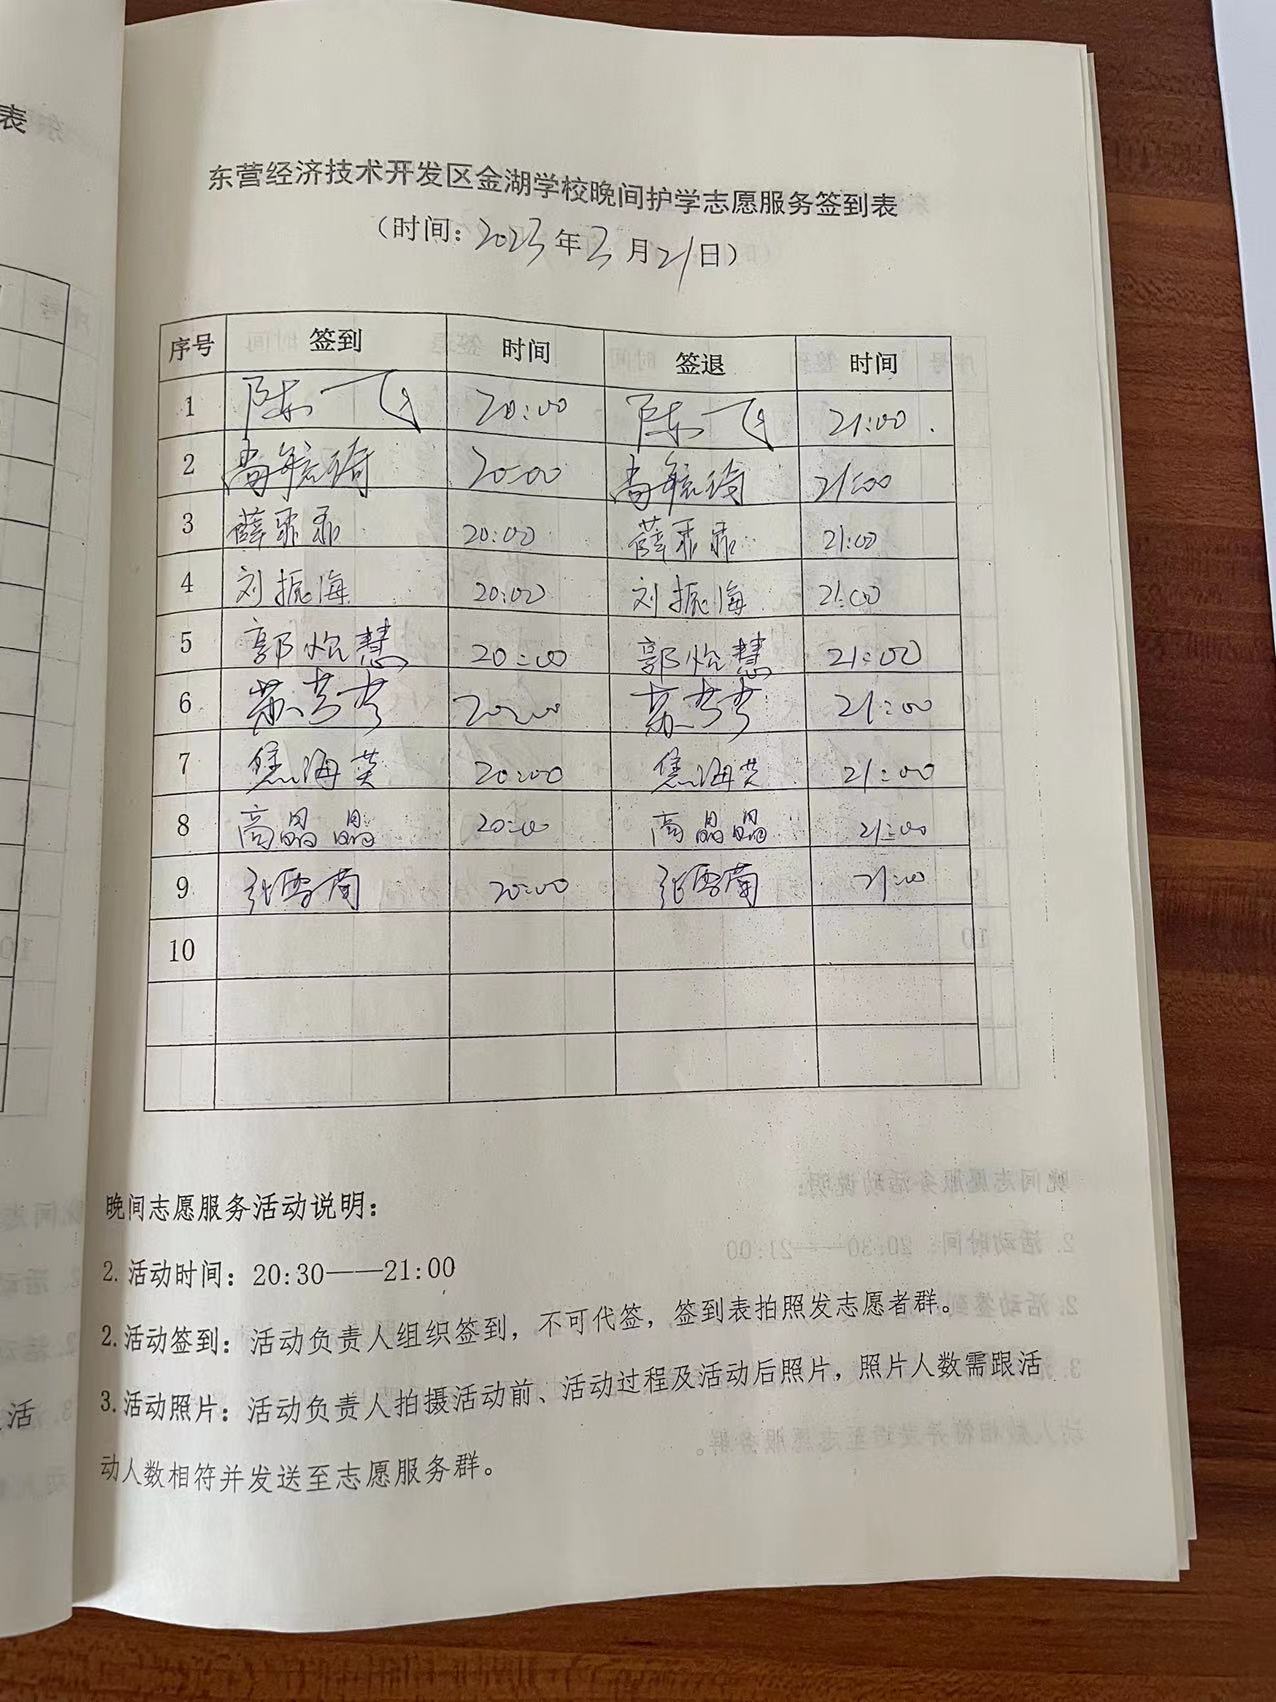 表
东营经济技术开发区金湖学校晚间护学志愿服务签到表
（时间：2023年3月21日）
序号 签到 时间 签退 时间
1 陈飞 20:00 陈飞 21:00
2 20:00 21:00
3 薛乖乖 20:00 薛乖乖 21:00
4 刘振海 20:00 刘振海 21:00
5 郭怡慧 20:00 郭怡慧 21:00
6 苏芳芳 20:00 苏芳芳 21:00
7 焦海英 20:00 焦海英 21:00
8 高晶晶 20:00 高晶晶 21:00
9 张雪菊 20:00 张雪菊 21:00
10
晚间志愿服务活动说明：
2. 活动时间：20:30——21:00
2. 活动签到：活动负责人组织签到，不可代签，签到表拍照发志愿者群。
3. 活动照片：活动负责人拍摄活动前、活动过程及活动后照片，照片人数需跟活
动人数相符并发送至志愿服务群。
活